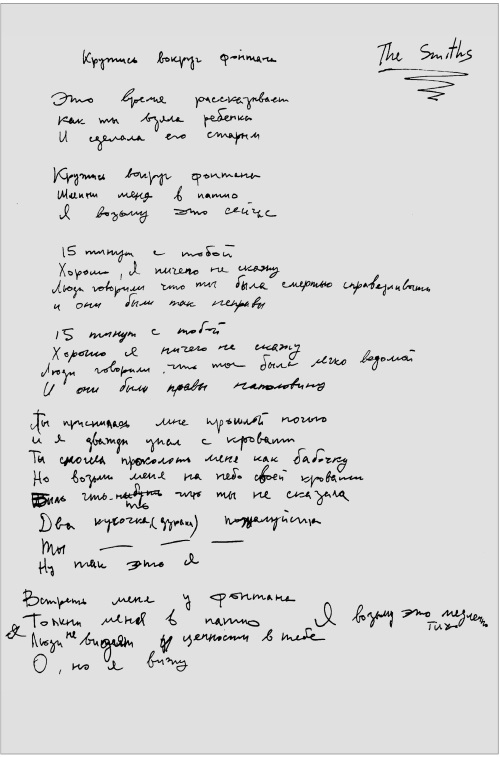 The Smiths
Крутись вокруг фонтана
Это время рассказывает
как ты взяла ребенка
И сделала его старым
Крутись вокруг фонтана
меня в патио
Я возьму это сейчас
15 минут с тобой
Хорошо, я ничего не скажу
Люди говорили что ты была смертью
и они были так неправы
15 минут с тобой
Хорошо я ничего не скажу
Люди говорили что ты была легко ведомой
И они были правы наполовину
Ты приснилась мне прошлой ночью
и я дважды упал с кровати
Ты смогла проколоть меня как бабочку
Но возьми меня на небо своей кровати
что-нибудь что ты не сказала
Два кусочка (думай) пожалуйста
Ты — — —
Ну так это я
Встреть меня у фонтана
Толкни меня в патио
Я возьму это медленно
Люди не видят ценности в тебе
О, но я вижу